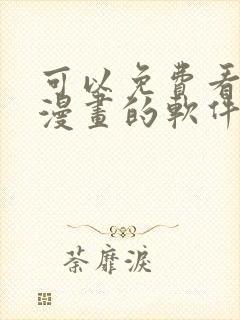 可以免費看
漫畫的軟件
荼靡淚